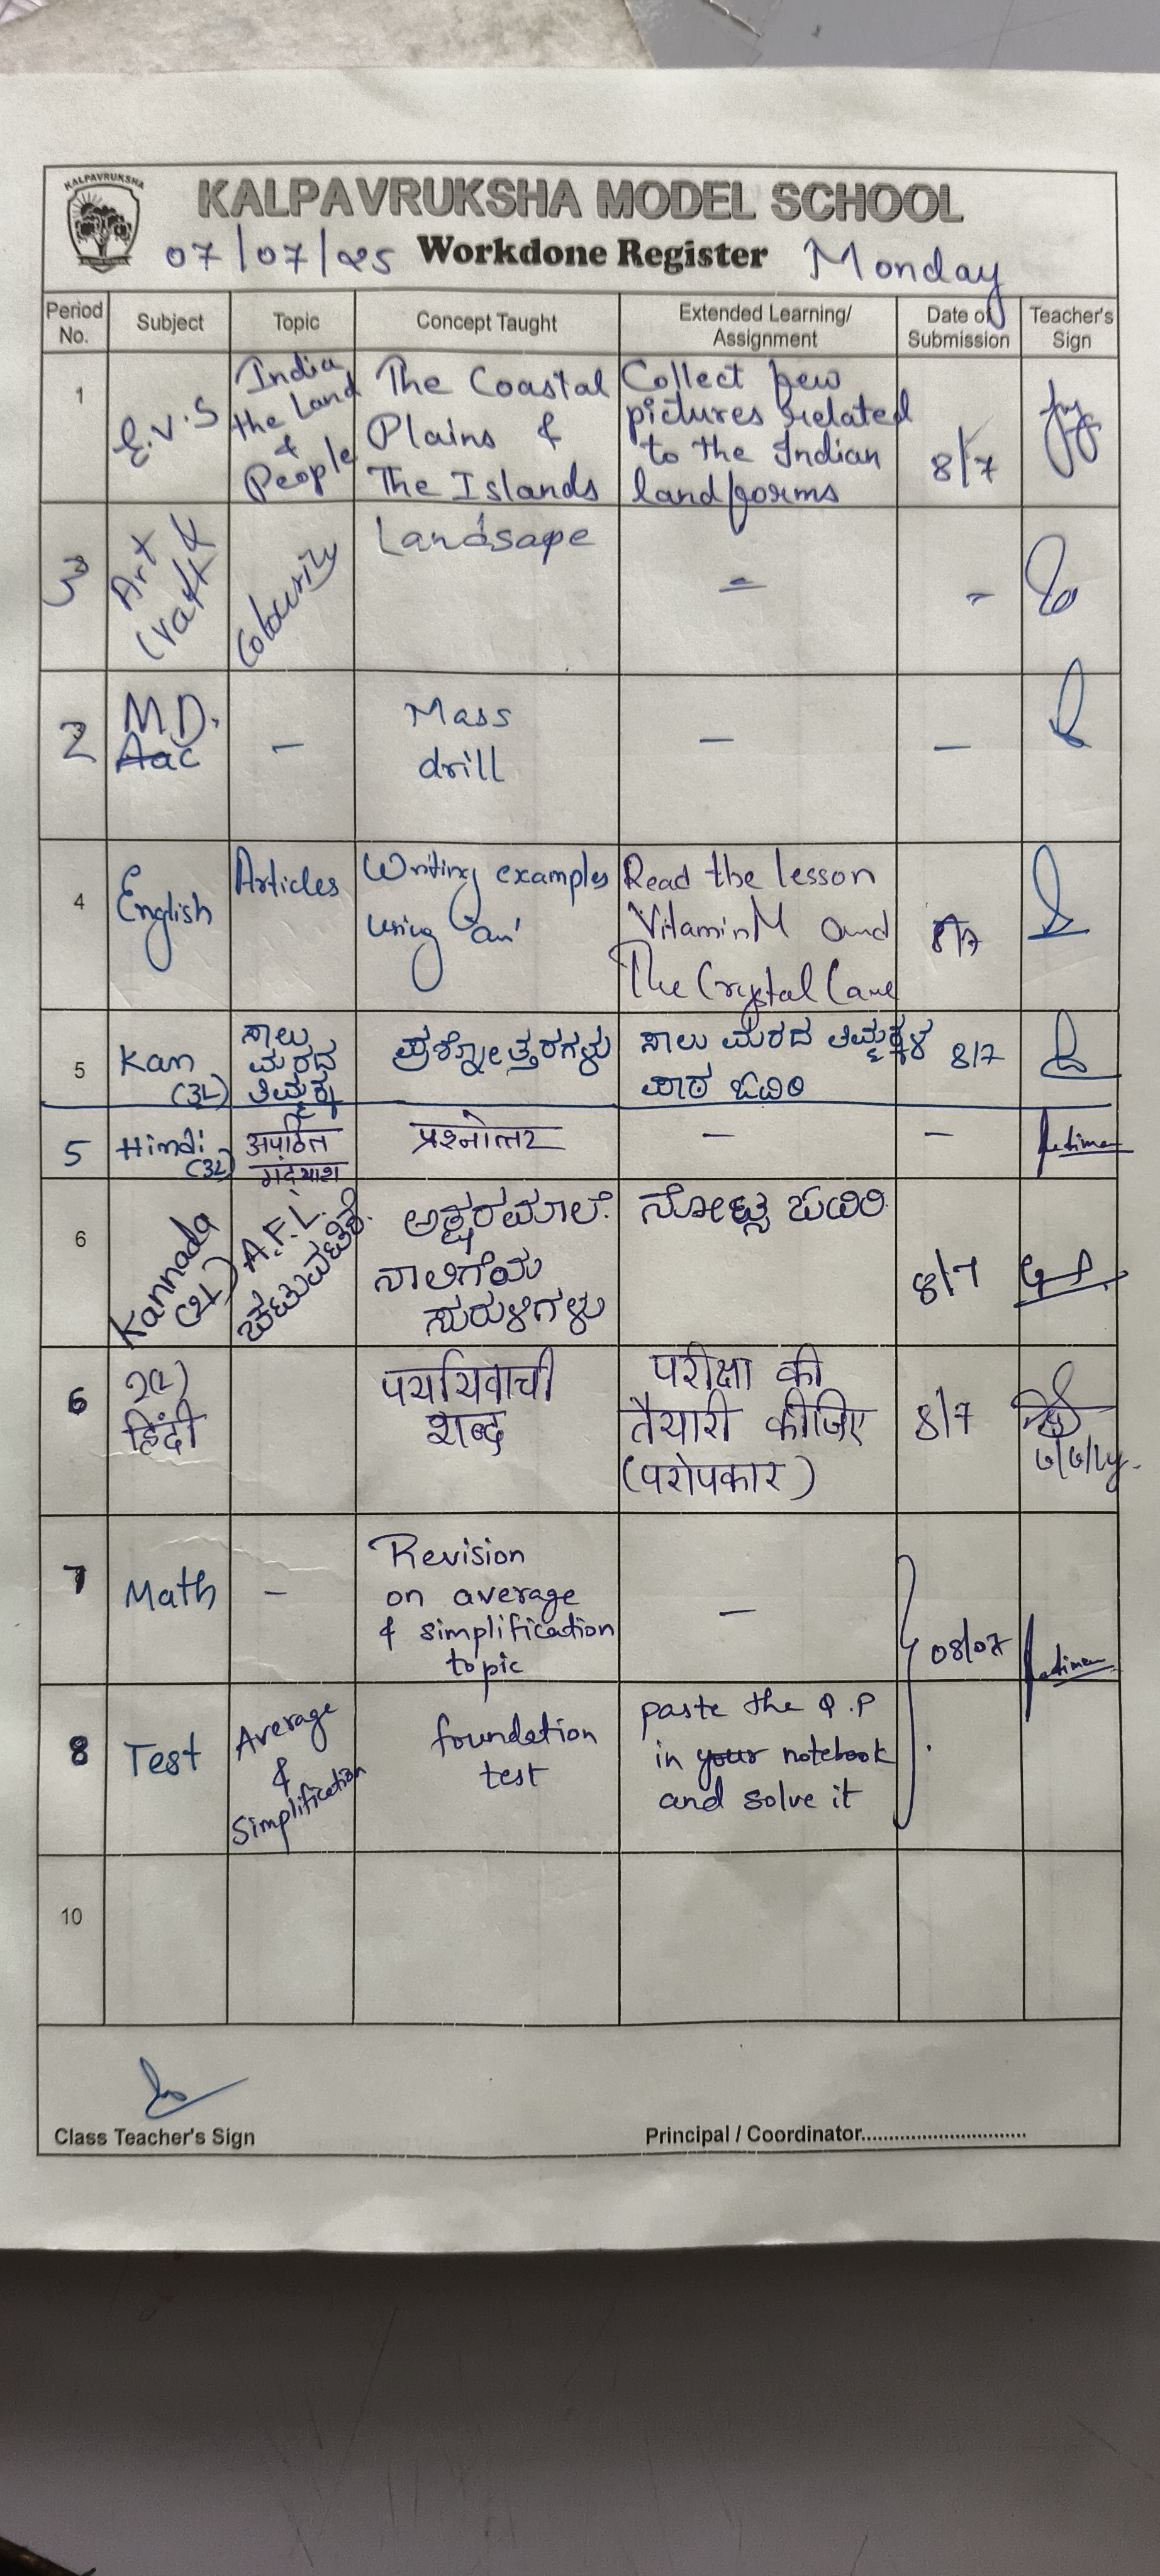 KALPAVRUKSHA
KALPAVRUKSHA MODEL SCHOOL
07/07/25 Workdone Register Monday
Period No. Subject Topic Concept Taught Extended Learning/ Assignment Date of Submission Teacher's Sign
1
E.V.S
India
the Land
&
People
The Coastal
Plains &
The Islands
Collect few
pictures related
to the Indian
landforms
8/7
3
Art &
Craft
Colouring
Landsape
-
-
2
M.D.
Aac
-
Mass
drill
-
-
4
English
Articles
Writing examples
using 'an'
Read the lesson
Vitamin M and
The Crystal Cave
8/7
5
Kan
(3L)
ಸಾಲು
ಮರದ
ತಿಮ್ಮಕ್ಕ
ಪ್ರಶ್ನೋತ್ತರಗಳು
ಸಾಲು ಮರದ ತಿಮ್ಮಕ್ಕಳ
ಪಾಠ ಓದಿರಿ
8/7
5
Hindi
(3L)
अपठित
गद्यांश
प्रश्नोत्तर
-
-
6
Kannada
(2L)
A.F.L.
ಚಟುವಟಿಕೆ.
ಅಕ್ಷರಮಾಲೆ.
ನಾಲಿಗೆಯ
ಸುರುಳಿಗಳು
ನೋಟ್ಸ ಓದಿರಿ
8/7
6
2(L)
हिंदी
पर्यायवाची
शब्द
परीक्षा की
तैयारी कीजिए
(परोपकार)
8/7
7
Math
-
Revision
on average
& simplification
topic
-
08/07
8
Test
Average
&
Simplification
foundation
test
paste the Q.P
in your notebook
and solve it
10
Class Teacher's Sign
Principal / Coordinator..............................